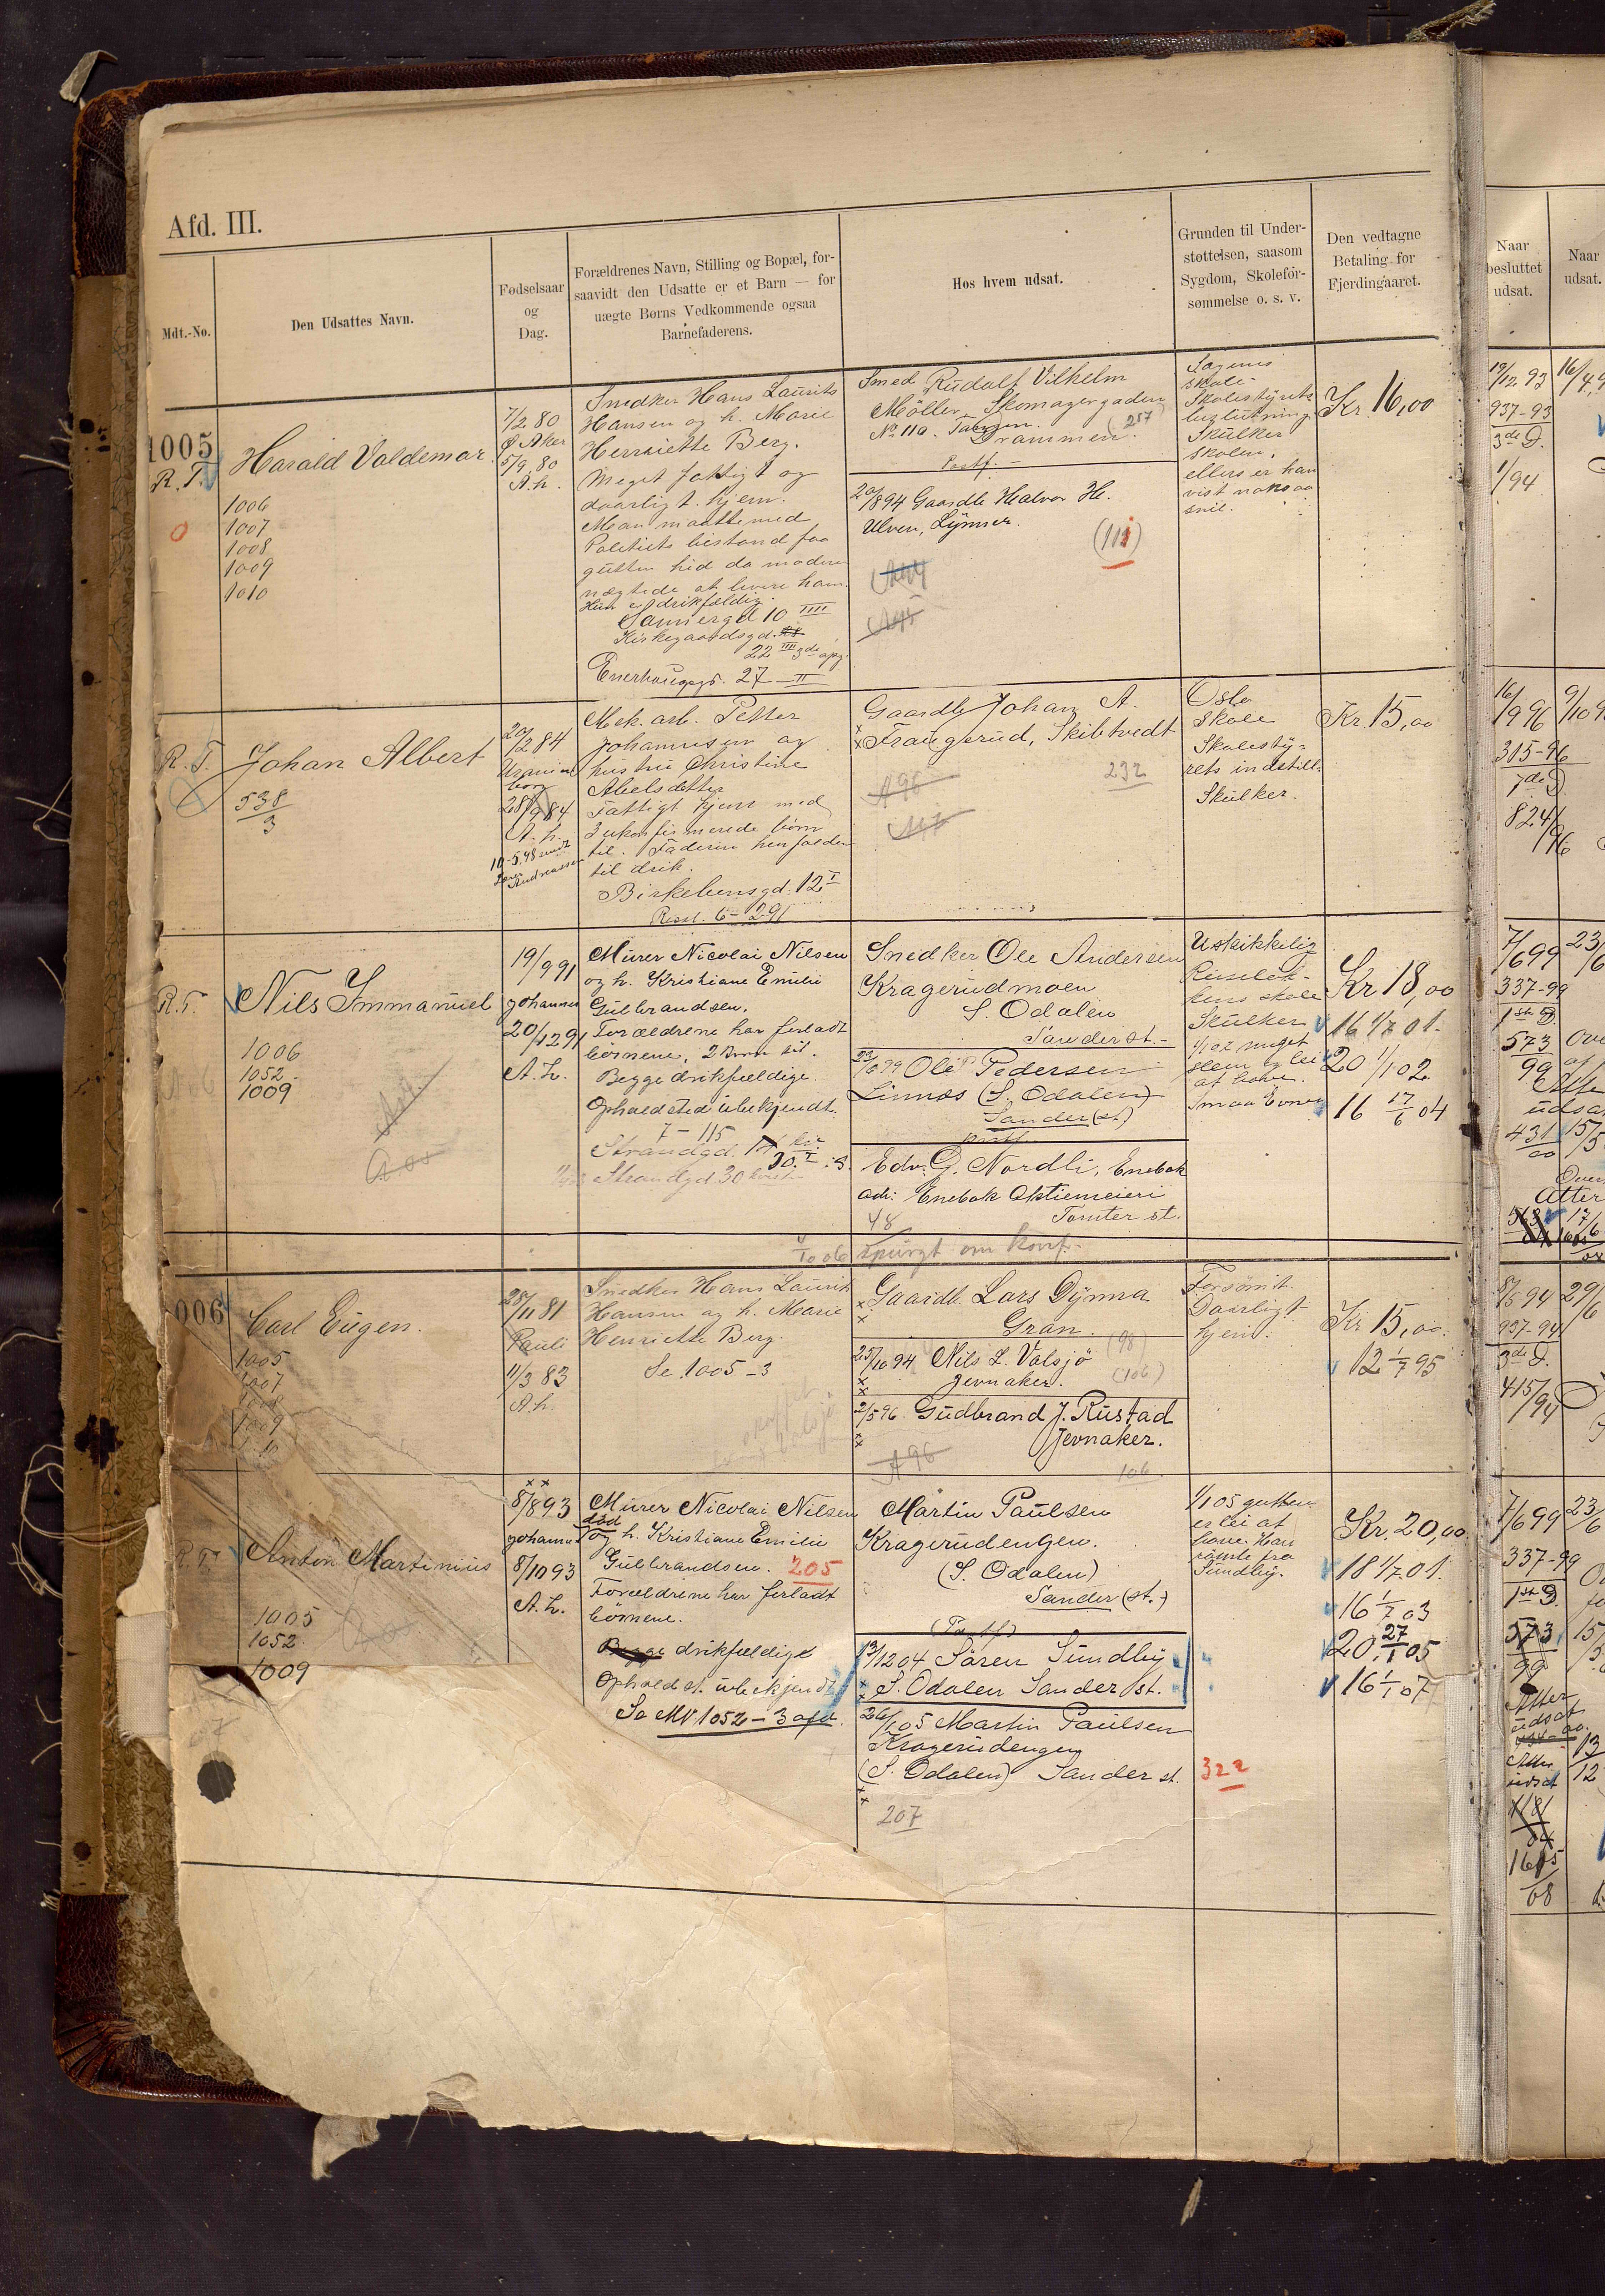 Afd. III.
Mdt.-No.
Den Udsattes Navn.
Fødselsaar
og
Dag.
Forældrenes Navn, Stilling og Bopæl, for-
saavidt den Udsatte er et Barn — for
uægte Børns Vedkommende ogsaa
Barnefaderens.
Hos hvem udsat.
Grunden til Under-
støttelsen, saasom
Sygdom, Skolefor-
sømmelse o. s. v.
Den vedtagne
Betaling for
Fjerdingaaret.
Naar
besluttet
udsat.
Naar
udsat.
1005
R. T.
Harald Valdemar
1006
1007
1008
1009
1010
7/2 80
Ø Aker
5/9 80
A. h.
Snedker Hans Laurits
Hansen og h. Marie
Henriette Berg.
Meget fattigt og
daarligt hjem.
Man maatte med
Politiets bistand faa
gutten hid da moderen
nægtede at levere ham.
Hun er drikfældig.
Sannergd 10 IIII
Kirkegaardsgd.
22 III 3de opg.
Enerhauggt. 27 - II
Smed Rudolf Vilhelm
Möller, Skomagergaden
No 110. Tangen.
Drammen. (257)
Postf. -
20/8 94 Gaardb Halvor H.
Ulven, Lymer.
(111)
Sagenes
skole-
Skolestyrets
beslutning
Skulker
skolen,
ellers er han
vist nok saa
snil.
Kr. 16,00
19/12 93
937-93
3de D.
1/94
R. T.
Johan Albert
538
3
20/2 84
Uranien
borg
28/9 84
A. h.
Mek. arb. Petter
Johannesen og
hustru Christine
Abelsdatter
Fattigt hjem med
3 ukonfirmerede börn
til. Faderen henfalden
til drik.
Birkebeinsgd. 12 I
Gaardb Johan A.
Fraugerud, Skibtvedt
A 96
232
Oslo
Skole
Skolesty-
rets indstill.
Skulker.
Kr. 15,00
16/9 96
315-96
7de D.
824/96
R. T.
Nils Immanuel
1006
1052
1009
19/9 91
Johannes
20/12 91
A. h.
Murer Nicolai Nilsen
og h. Kristiane Emilie
Gulbrandsen.
Forældrene har forladt
börnene, 2 börn til.
Begge drikfældige.
Opholdsted ubekjendt.
7 - 115
Strandgd.
Strandgd 30
Snedker Ole Andersen
Kragerudmoen
S. Odalen
Sander st. -
23/6 99 Ole Pedersen
Linnæs (S. Odalen)
Sander (st.)
Edv. G. Nordli, Enebak
adr: Enebak Aktiemeieri
Tomter st.
48
spurgt om konf.
Uskikkelig
Ruselök-
kens skole
Skulker
1/1 02 meget
slem og lei
at have.
Smaa Evner
Kr 18,00
16 1/7 01.
20 1/1 02
16 17/6 04
7/6 99
337-99
1ste D.
573
99
431
00
1006
Carl Eugen.
1005
1007
1008
1009
28/11 81
Pauli
11/3 83
A. h.
Snedker Hans Laurits
Hansen og h. Marie
Henriette Berg.
Se 1005 - 3
Gaardb. Lars Dynna
Gran.
(98)
25/10 94 Nils L. Valsjö
Jevnaker. (106)
2/5 96 Gudbrand J. Rustad
Jevnaker.
A 96
106
Forsömt.
Daarligt
hjem.
Kr. 15,00.
12 1/7 95
8/5 94
937-94
3de D.
415/94
R. T.
Anton Martinius
1005
1052
1009
8/8 93
Johannes
8/10 93
A. h.
Murer Nicolai Nilsen
död
og h. Kristiane Emilie
Gulbrandsen. 205
Forældrene har forladt
börnene.
Begge drikfældige
Opholdst. ubekjendt
Se MN 1052 - 3 afd.
Martin Paulsen
Kragerudengen.
(S. Odalen)
Sander (st.)
(Postf.)
13/12 04 Sören Sundby
S. Odalen Sander st.
26/1 05 Martin Paulsen
Kragerudengen
(S. Odalen) Sander st.
322
207
1/1 05 gutten
er lei at
have. Han
römte fra
Sundby.
Kr. 20,00
18 1/7 01.
16 1/7 03
20 27/1 05
16 1/1 07
7/6 99
337-99
1ste D.
573
99
Atter
udsat
Atter
udsat